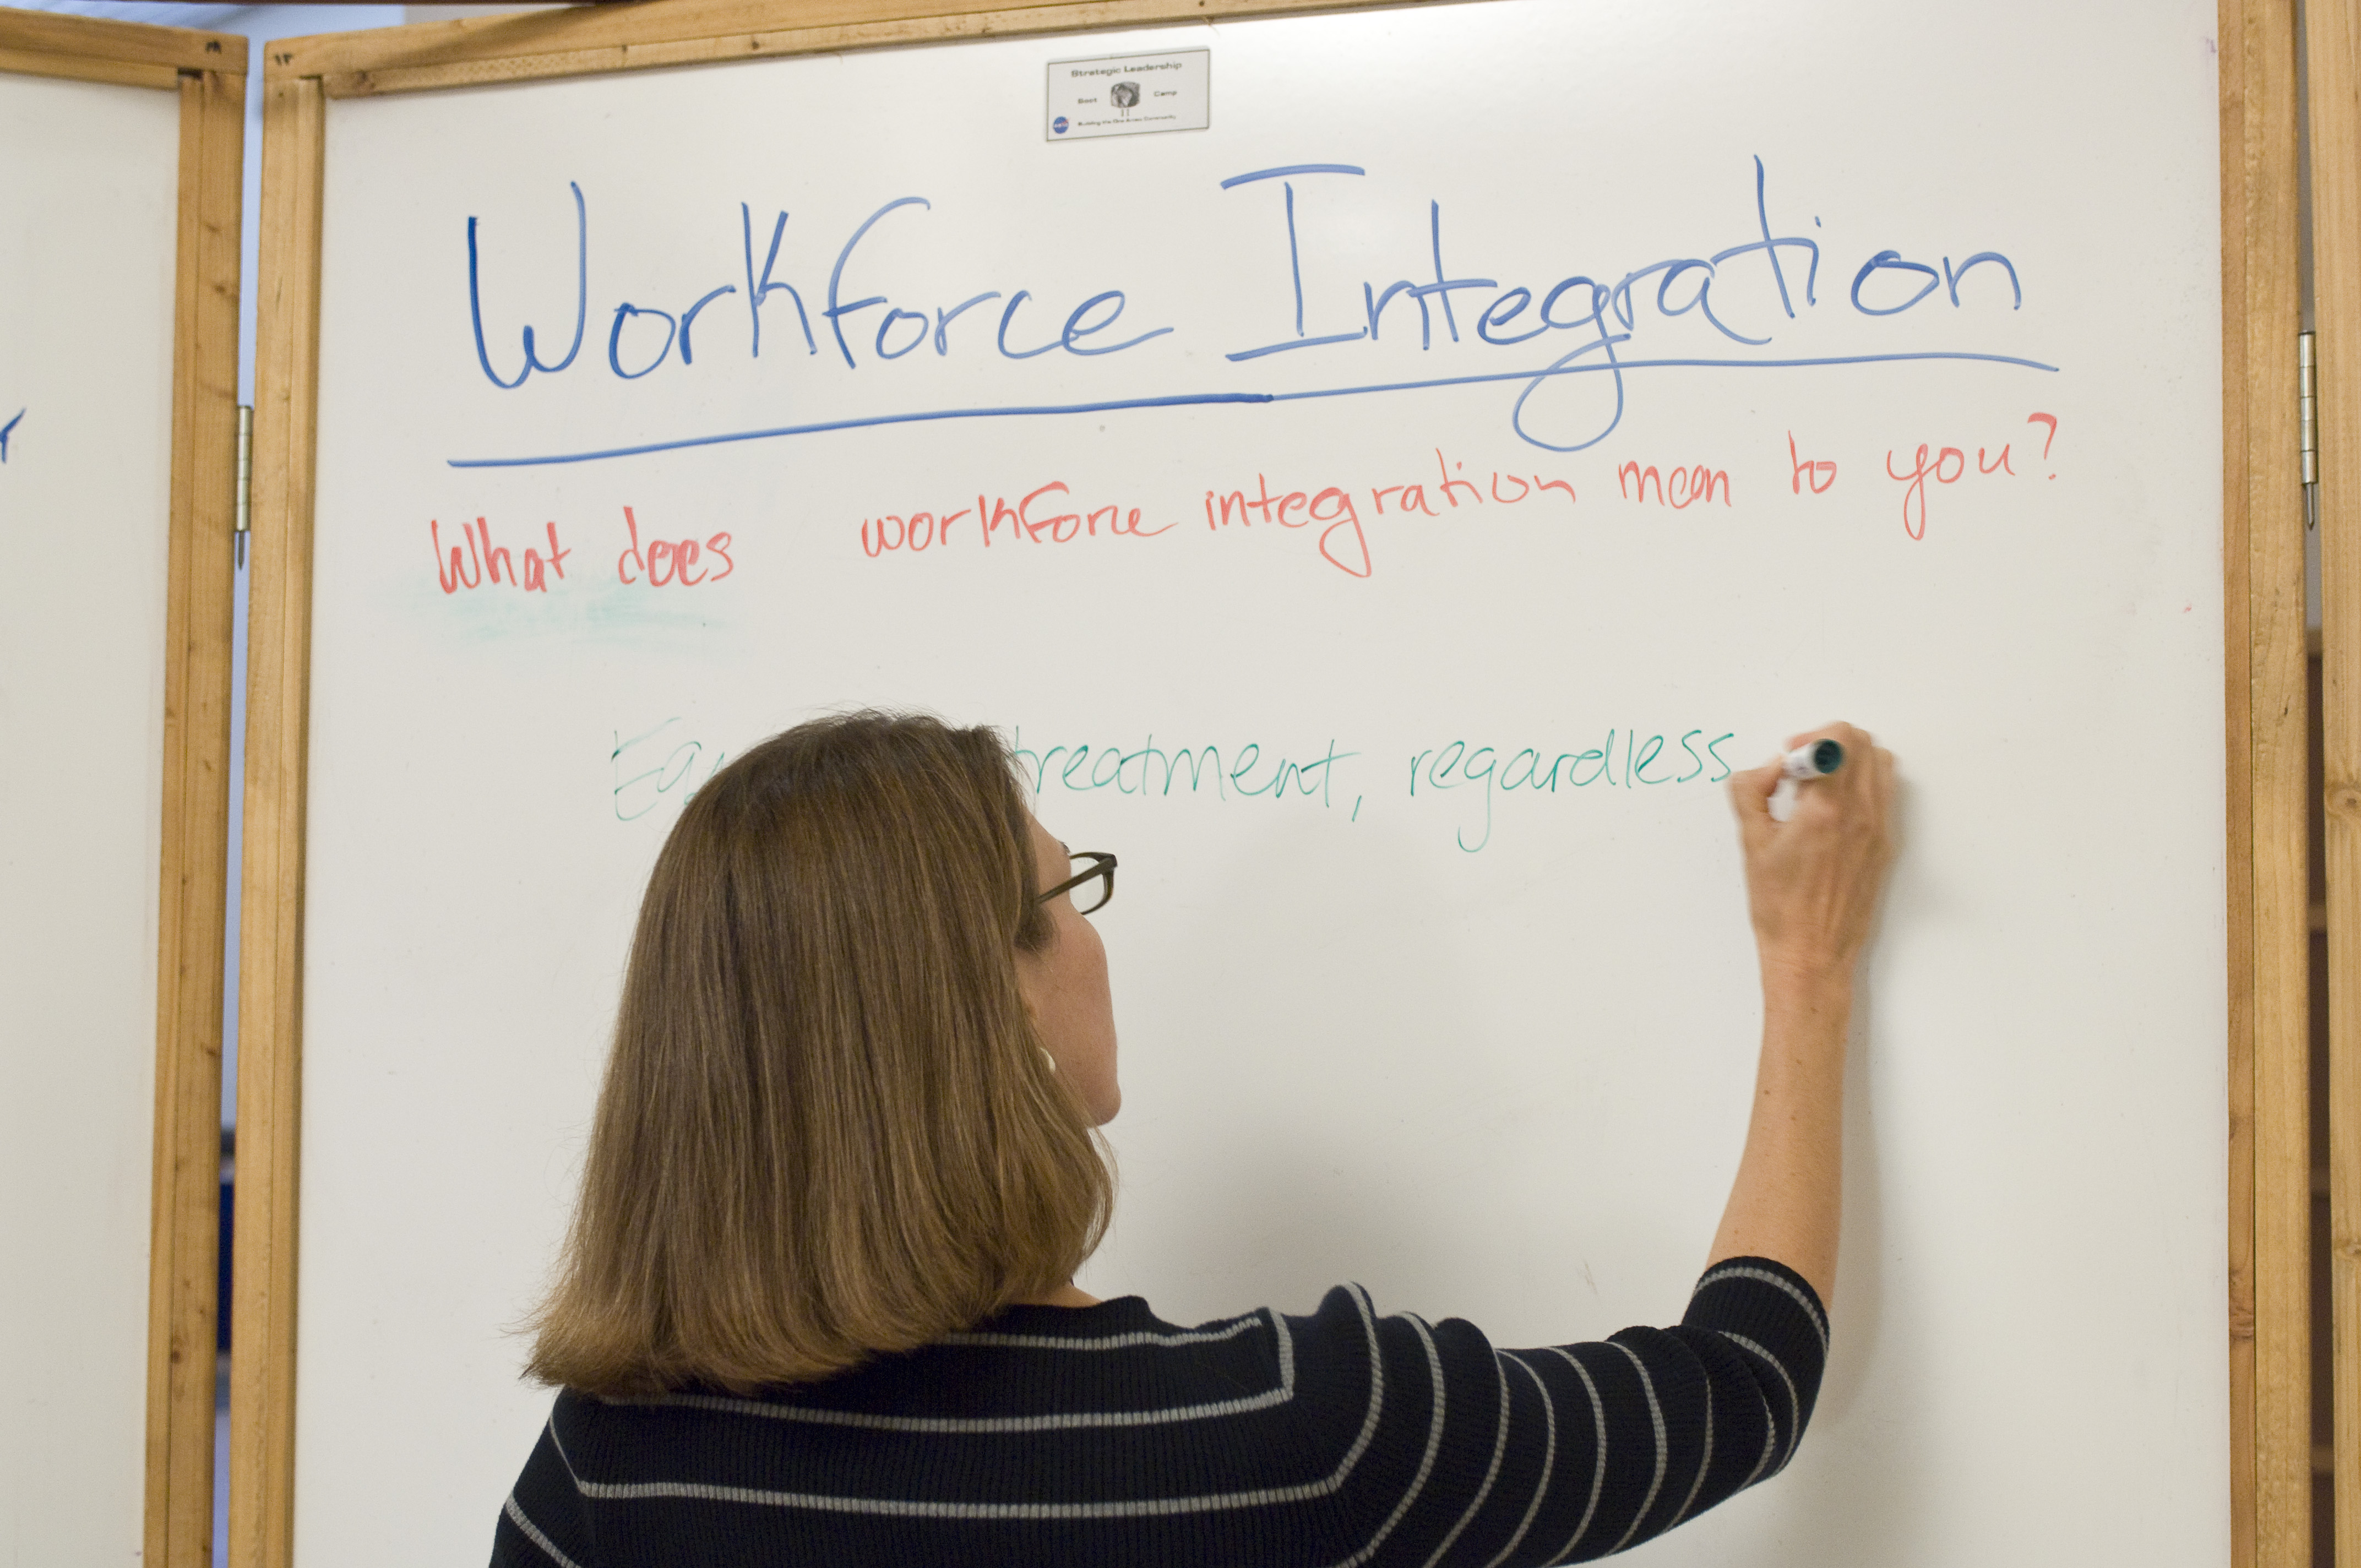 Strategic Leadership
Boot Camp
Building the One Ames Community
Workforce Integration
What does workforce integration mean to you?
treatment, regardless